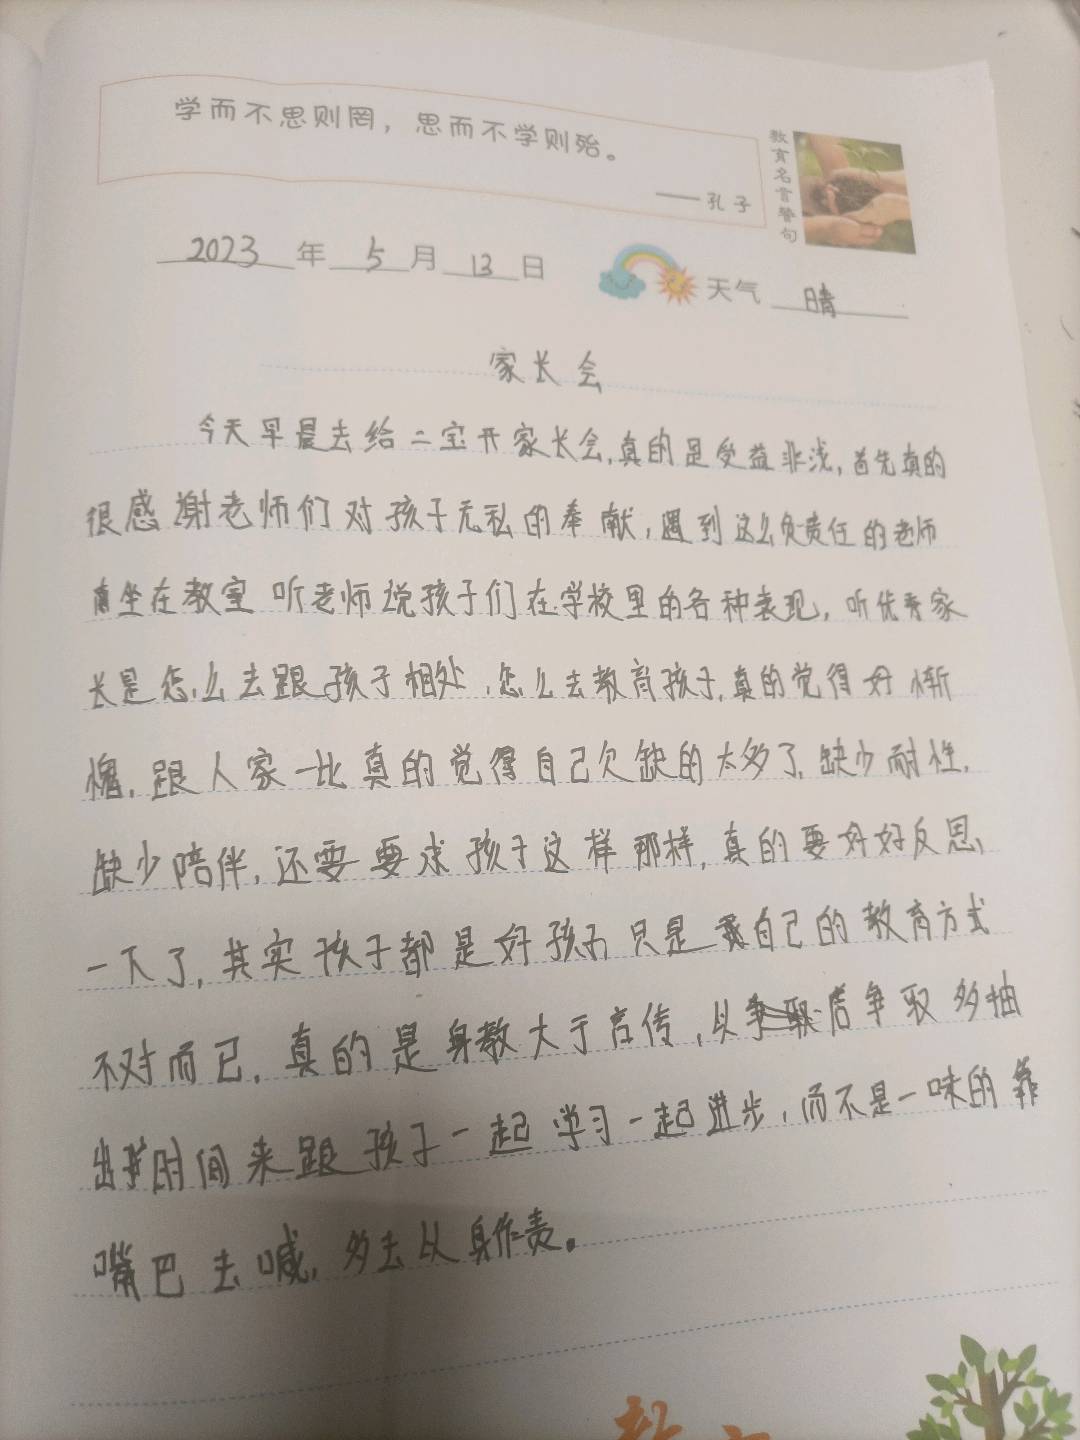 学而不思则罔，思而不学则殆。
——孔子
教育名言警句
2023年5月13日 天气 晴
家长会
今天早晨去给二宝开家长会,真的是受益非浅,首先真的
很感谢老师们对孩子无私的奉献,遇到这么负责任的老师
坐在教室听老师说孩子们在学校里的各种表现,听优秀家
长是怎么去跟孩子相处,怎么去教育孩子,真的觉得好惭
愧,跟人家一比真的觉得自己欠缺的太多了,缺少耐性,
缺少陪伴,还要要求孩子这样那样,真的要好好反思
一下了,其实孩子都是好孩子,只是自己的教育方式
不对而已,真的是身教大于言传,以后争取多抽
出时间来跟孩子一起学习一起进步,而不是一味的靠
嘴巴去喊,多去以身作责。